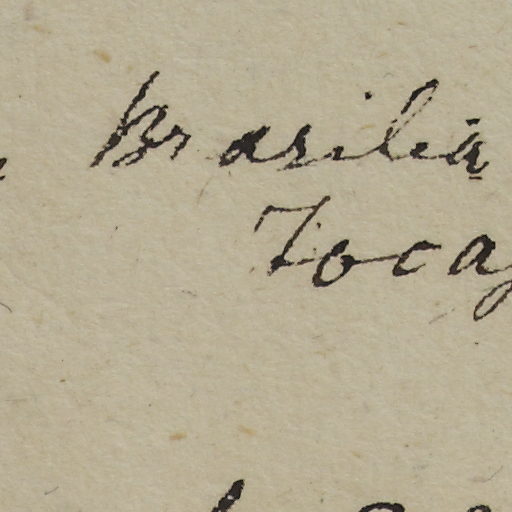 Brasilia
Toca